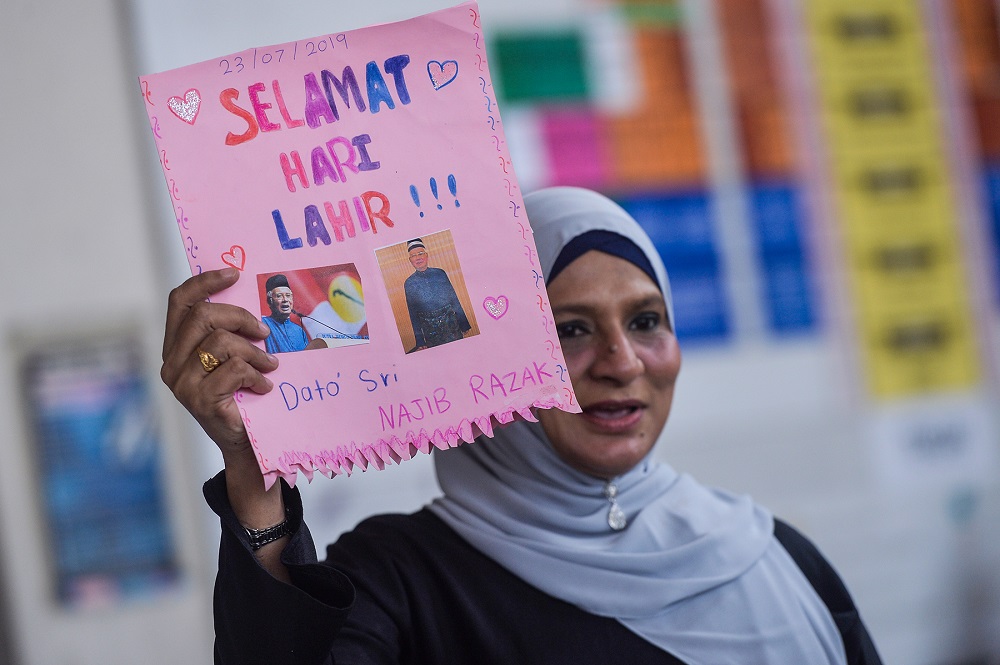 23/07/2019
SELAMAT
HARI
LAHIR !!!
Dato' Sri
NAJIB RAZAK